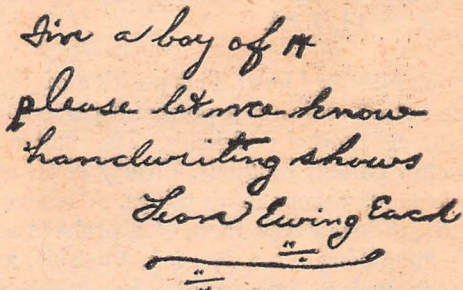 I'm a boy of 14
please let me know
handwriting shows
Leon Ewing